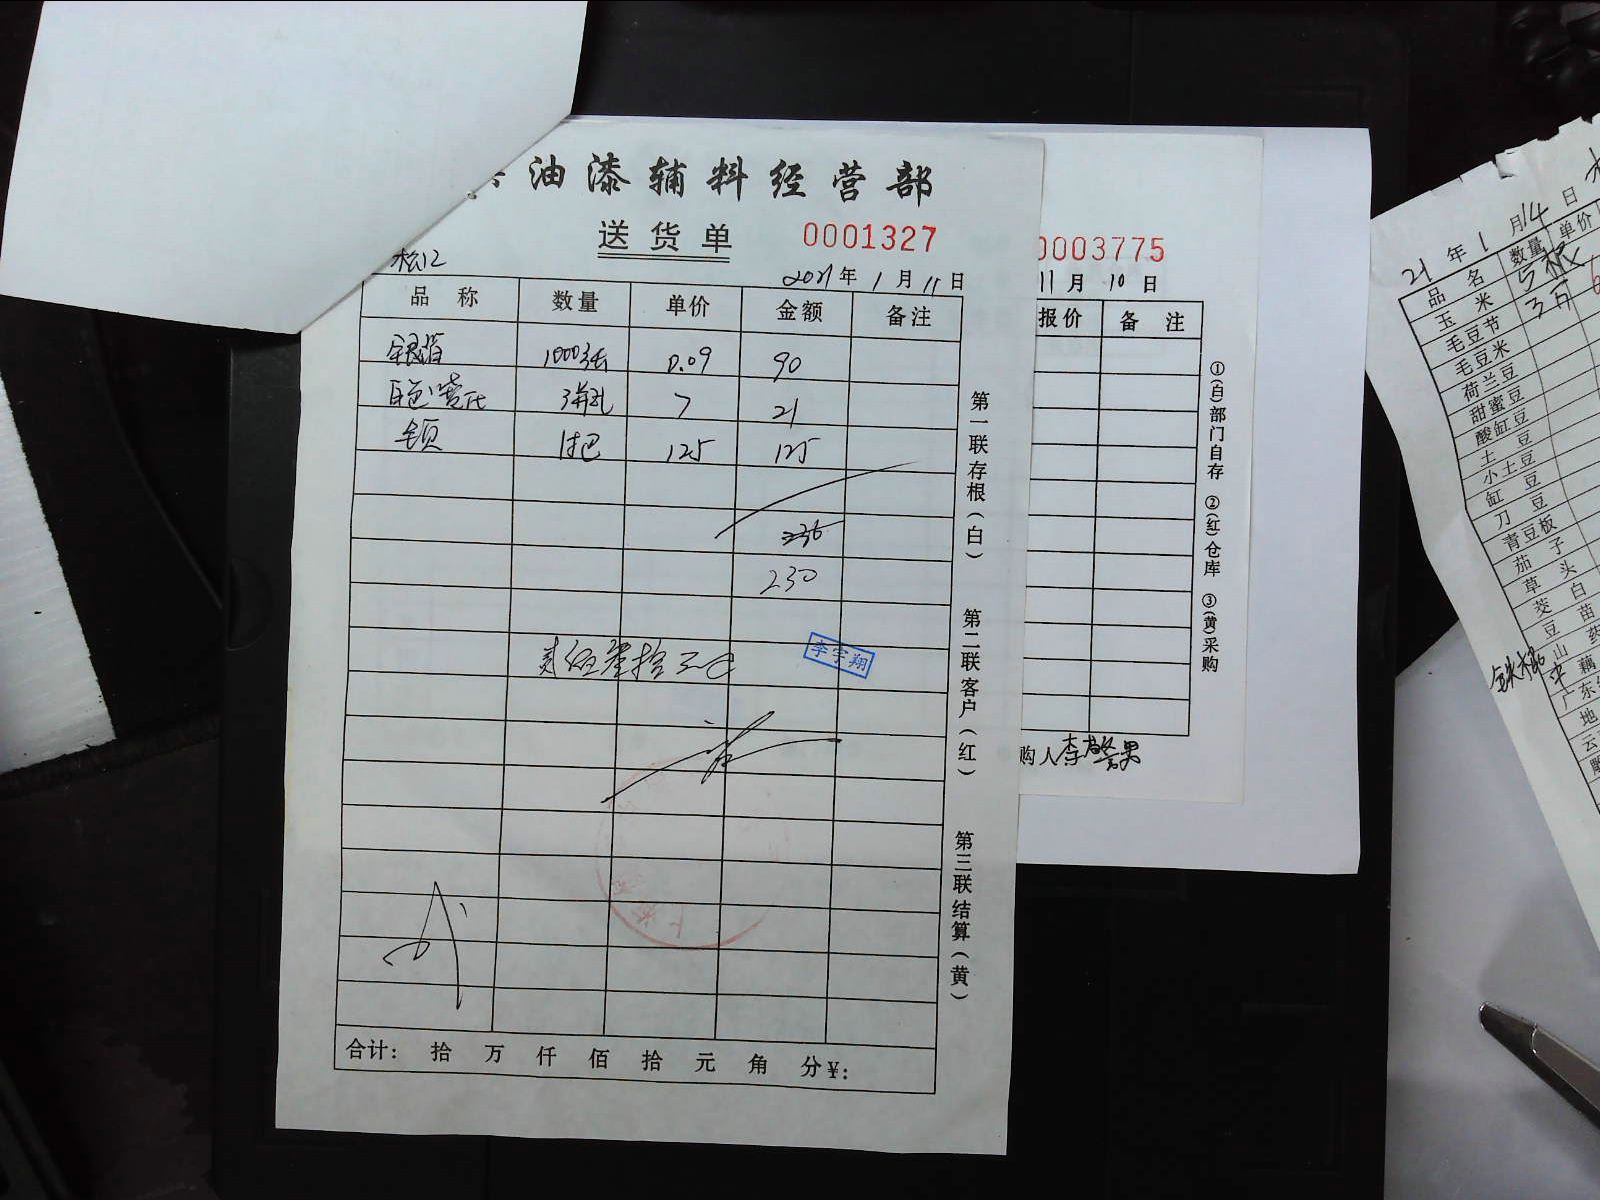 油漆辅料经营部
送货单
0001327
松江
2021年1月11日
品称 数量 单价 金额 备注
银箔 1000张 0.09 90
3瓶 7 21
1把 125 125
236
230
贰佰叁拾元
李宇翔
合计: 拾 万 仟 佰 拾 元 角 分 ¥:
第一联存根(白) 第二联客户(红) 第三联结算(黄)
0003775
11月10日
报价 备注
①(白)部门自存 ②(红)仓库 ③(黄)采购
购人李
21年1月14日
品名 数量 单价
玉米
毛豆节
毛豆米
荷兰豆
甜蜜豆
酸缸豆
土豆
小土豆
缸豆
刀豆
青豆板
茄子
草头
茭白
豆苗
山药
藕
广东
地
云